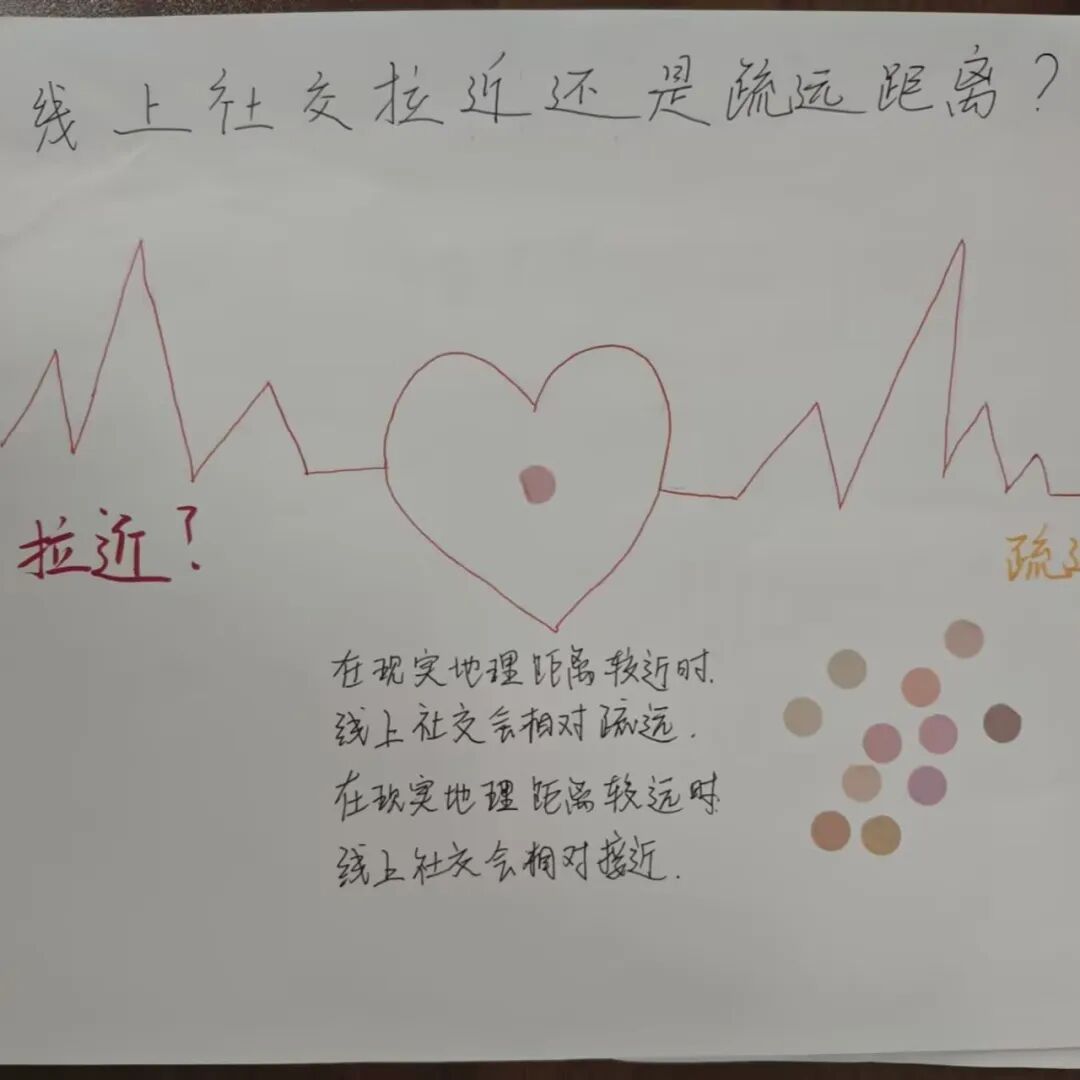 线上社交拉近还是疏远距离？
拉近？
疏远
在现实地理距离较近时.
线上社交会相对疏远.
在现实地理距离较远时.
线上社交会相对接近.